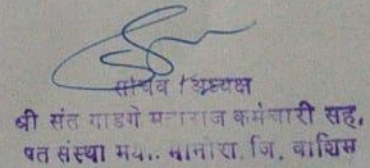 सचिव / अध्यक्ष
श्री संत गाडगे महाराज कर्मचारी सह.
पत संस्था मर्या.. मानोरा. जि. वाशिम